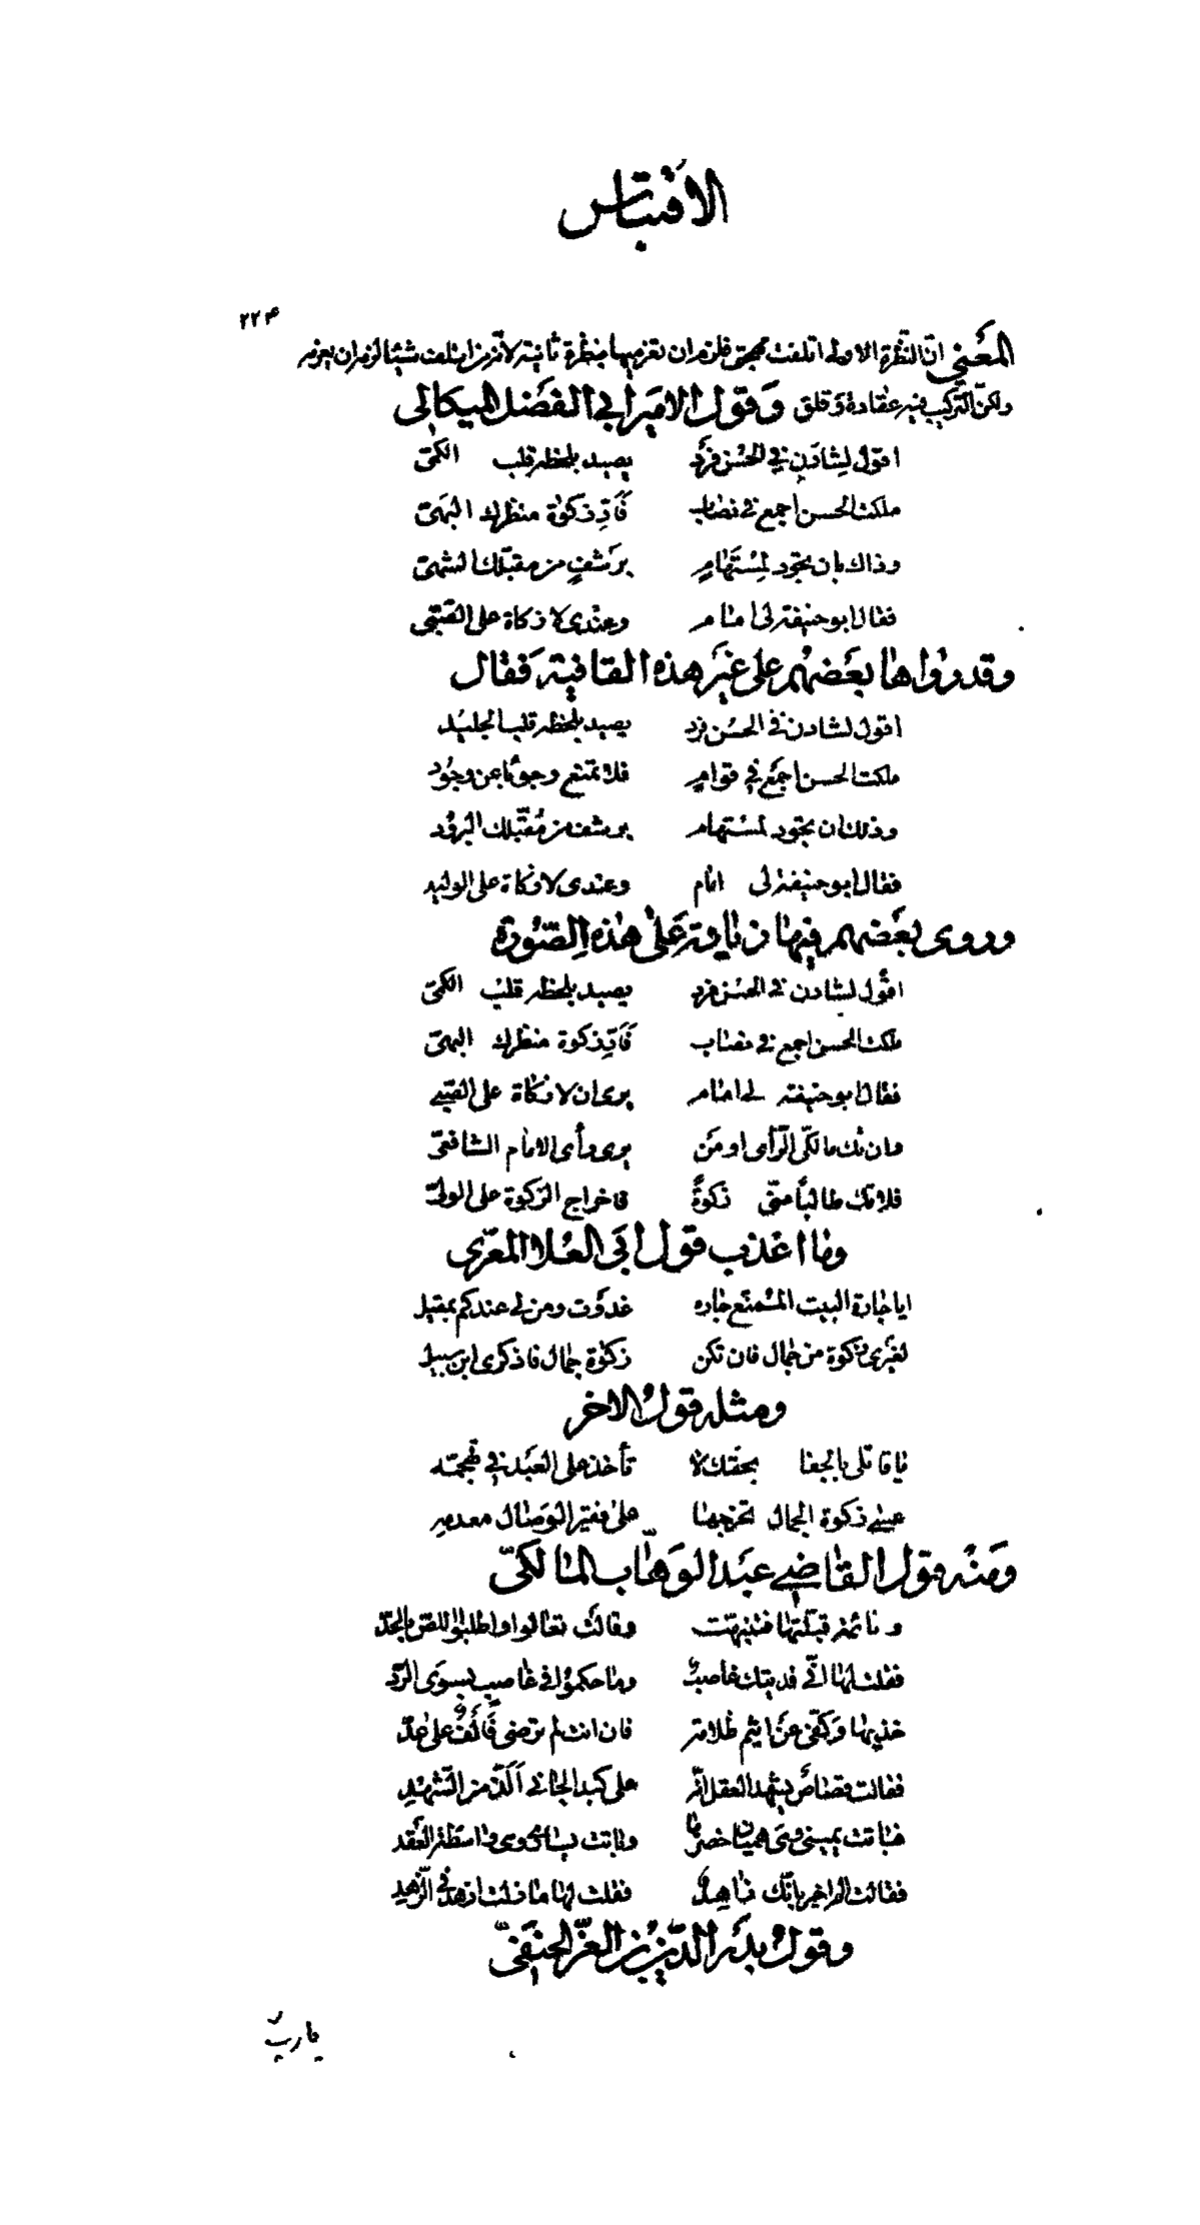 الاقتباس
٢٢٤
المعنى ان النظرة الاولى اتلفت مهجتى فلزم ان تغرميها بنظرة ثانية لانّ من اتلف شيئا لزم ان يغرمه
ولكنّ التركيب فيه عقادة وقلق وقول الامير ابى الفضل الميكالى
اقول لشادن فى الحسن فرد يصيد بلحظه قلب الكمىّ
ملكت الحسن اجمع فى نصاب فَأدِّ زكوة منظرك البهىّ
وذاك بان تجود لمستهام برشف من مقبّلك الشهىّ
فقال ابو حنيفة لى امام وعندى لا زكاة على الصّبىّ
وقد رواها بعضهم على غير هذه القافية فقال
اقول لشادن فى الحسن فرد يصيد بلحظه قلب الجليد
ملكت الحسن اجمع فى قوام فلا تمنع وجوبا عن وجود
وذلك ان تجود لمستهام برشف من مقبّلك البرود
فقال ابو حنيفة لى امام وعندى لا زكاة على الوليد
وروى بعضهم فيها زيادة على هذه الصّورة
اقول لشادن فى الحسن فرد يصيد بلحظه قلب الكمىّ
ملكت الحسن اجمع فى نصاب فَأدِّ زكوة منظرك البهىّ
فقال ابو حنيفة لى امام يرى ان لا زكاة على الصّبى
وان تك مالكىّ الرّأى او من يرى رأى الامام الشافعىّ
فلا تك طالبًا منّى زكوةً فاخراج الزكوة على الولىّ
وما اعذب قول ابى العلا المعرّى
ايا جارة البيت الممنّع جاره غدوت ومن لى عندكم بمقيل
لغيرى زكوة من جمال فان تكن زكوة جمال فاذكرى ابن سبيل
ومثله قول الاخر
يا قاتلى بالجفا بحقك لا تأخذ على العبد فى تهجمه
عينى زكوة الجمال تخرجها على فقير الوصال معدمه
ومنه قول القاضى عبد الوهّاب المالكىّ
ونائمة قبّلتها فتنبهت وقالت تعالوا واطلبوا اللص بالحدّ
فقلت لها انّى فديتك غاصب وما حكموا فى غاصب بسوى الرّدّ
خذيها وكفّى عن اثيم ظلامة فان انت لم ترضى فألف على عدّ
فقالت قصاص يشهد العقل انّه على كبد الجانى الذّ من الشّهد
فباتت يمينى وهى هميان خصرها وباتت يسارى وهى واسطة العقد
فقالت الم اخبر بانّك زاهد فقلت لها ما زلت ازهد فى الزّهد
وقول بدر الدّين بن العزّ الحنفىّ
يا ربّ